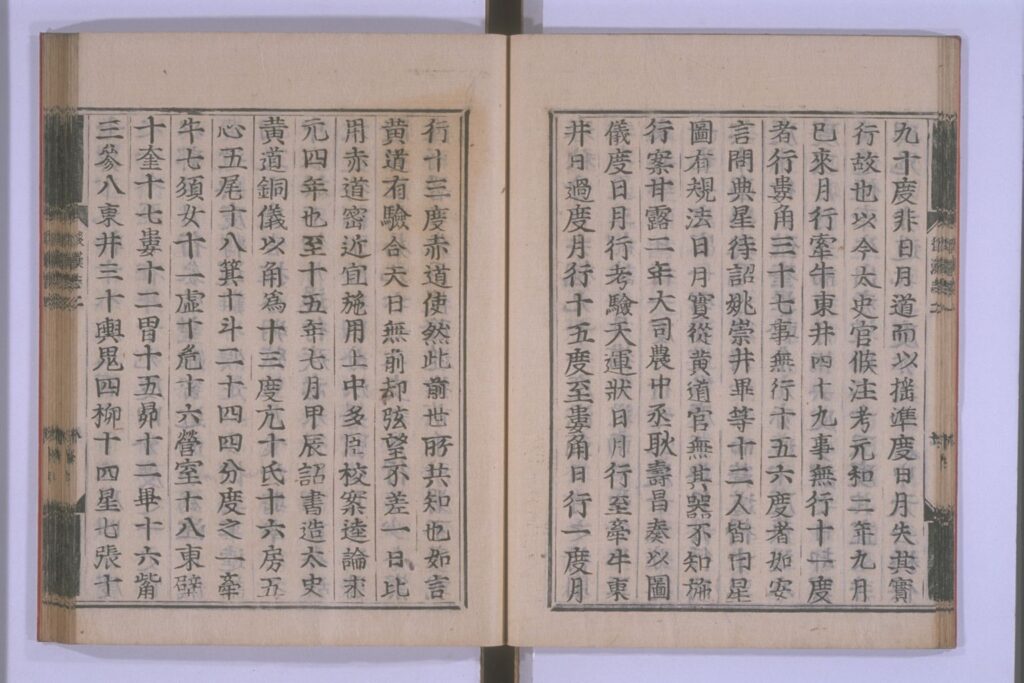 九十度非日月道而以揺準度日月失其實
行故也以今太史官候注考元和二年九月
已來月行牽牛東井四十九事無行十一度
者行婁角三十七事無行十五六度者如安
言問典星待詔姚崇井畢等十二人皆曰星
圖有規法日月實從黄道官無其器不知施
行案甘露二年大司農中丞耿壽昌奏以圖
儀度日月行考驗天運狀日月行至牽牛東
井日過度月行十五度至婁角日行一度月
行十三度赤道使然此前世所共知也如言
黄道有驗合天日無前却弦望不差一日比
用赤道密近宜施用上中多臣校案逵論永
元四年也至十五年七月甲辰詔書造太史
黄道銅儀以角爲十三度亢十氐十六房五
心五尾十八箕十斗二十四四分度之一牽
牛七須女十一虛十危十六營室十八東壁
十奎十七婁十二胃十五昴十二畢十六觜
三參八東井三十輿鬼四柳十四星七張十